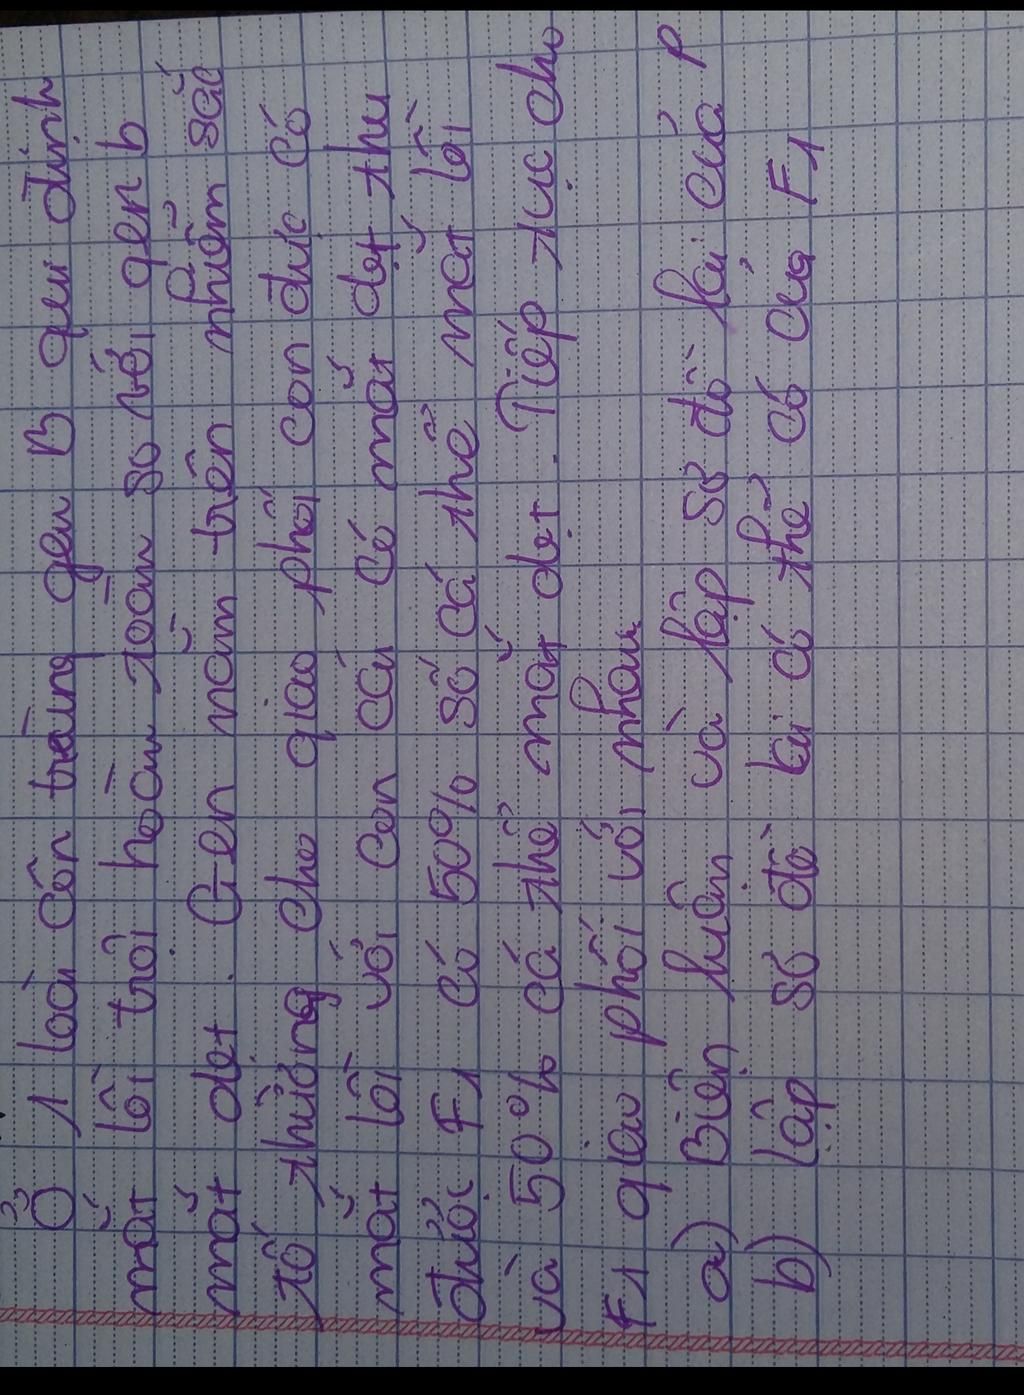 Ở 1 loài côn trùng gen B qui định
mắt lồi trội hoàn toàn so với gen b
mắt dẹt. Gen nằm trên nhiễm sắc
tố thường cho giao phối con đực có
mắt lồi với con cái có mắt dẹt thu
được F1 có 50% số cá thể mắt lồi
và 50% cá thể mắt dẹt. Tiếp tục cho
F1 giao phối với nhau
a) Biện luận và lập sơ đồ lai của P
b) Lập sơ đồ lai có thể có của F1